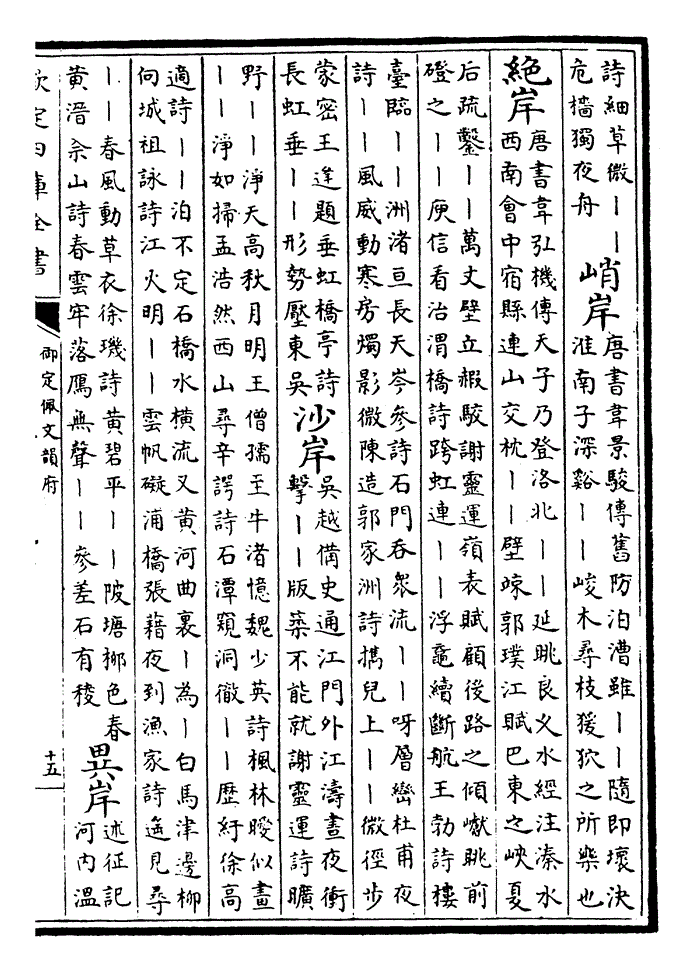 詩細草微丨丨
危檣獨夜舟
峭岸
唐書韋景駿傳舊防泊漕雖丨丨隨即壞決
淮南子深谿丨丨峻木尋枝猨狖之所樂也
絶岸
唐書韋弘機傳天子乃登洛北丨丨延眺良久水經注溱水
西南會中宿縣連山交枕丨丨壁竦郭璞江賦巴東之峽夏
后疏鑿丨丨萬丈壁立赮駮謝靈運嶺表賦顧後路之傾巘眺前
磴之丨丨庾信看治渭橋詩跨虹連丨丨浮黿續斷航王勃詩樓
臺臨丨丨洲渚亘長天岑參詩石門吞衆流丨丨呀層巒杜甫夜
詩丨丨風威動寒房燭影微陳造郭家洲詩擕兒上丨丨微徑步
蒙密王逢題垂虹橋亭詩
長虹垂丨丨形勢壓東吳
沙岸
吳越備史通江門外江濤晝夜衝
擊丨丨版築不能就謝靈運詩曠
野丨丨淨天高秋月明王僧孺至牛渚憶魏少英詩楓林曖似畫
丨丨淨如掃孟浩然西山尋辛諤詩石潭窺洞徹丨丨歷紆徐高
適詩丨丨泊不定石橋水橫流又黄河曲裏丨為丨白馬津邊柳
向城祖詠詩江火明丨丨雲帆礙浦橋張藉夜到漁家詩遥見尋
丨丨春風動草衣徐璣詩黄碧平丨丨陂塘柳色春
黄溍佘山詩春雲牢落鴈無聲丨丨參差石有稜
異岸
述征記
河内溫
欽定四庫全書
御定佩文韻府
十五